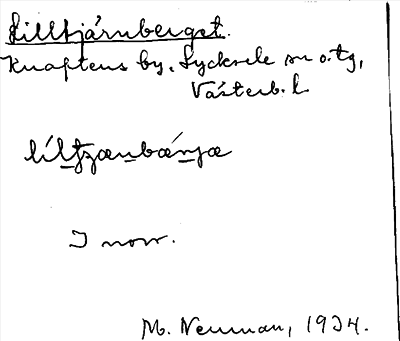 Lilltjärnberget.
Knaftens by, Lycksele sn o. tg,
Västerb. l.
I norr.
M. Neuman, 1934.